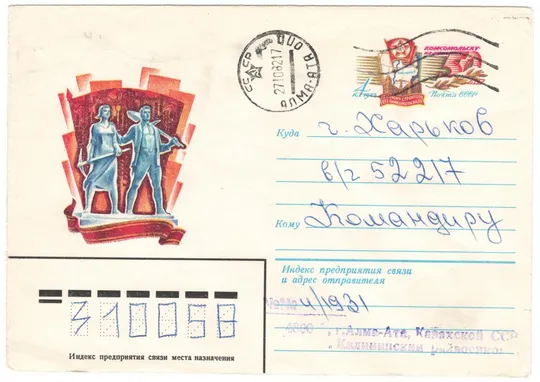 СССР 000 АЛМА-АТА
27108217
4 К
КОМСОМОЛЬСКУ-
Почта СССР
Куда г. Харьков
в/ч 52217
Кому Командиру
Индекс предприятия связи
и адрес отправителя
4/1931
г. Алма-Ата, Казахской ССР
Калининский райвоенком
310058
Индекс предприятия связи места назначения